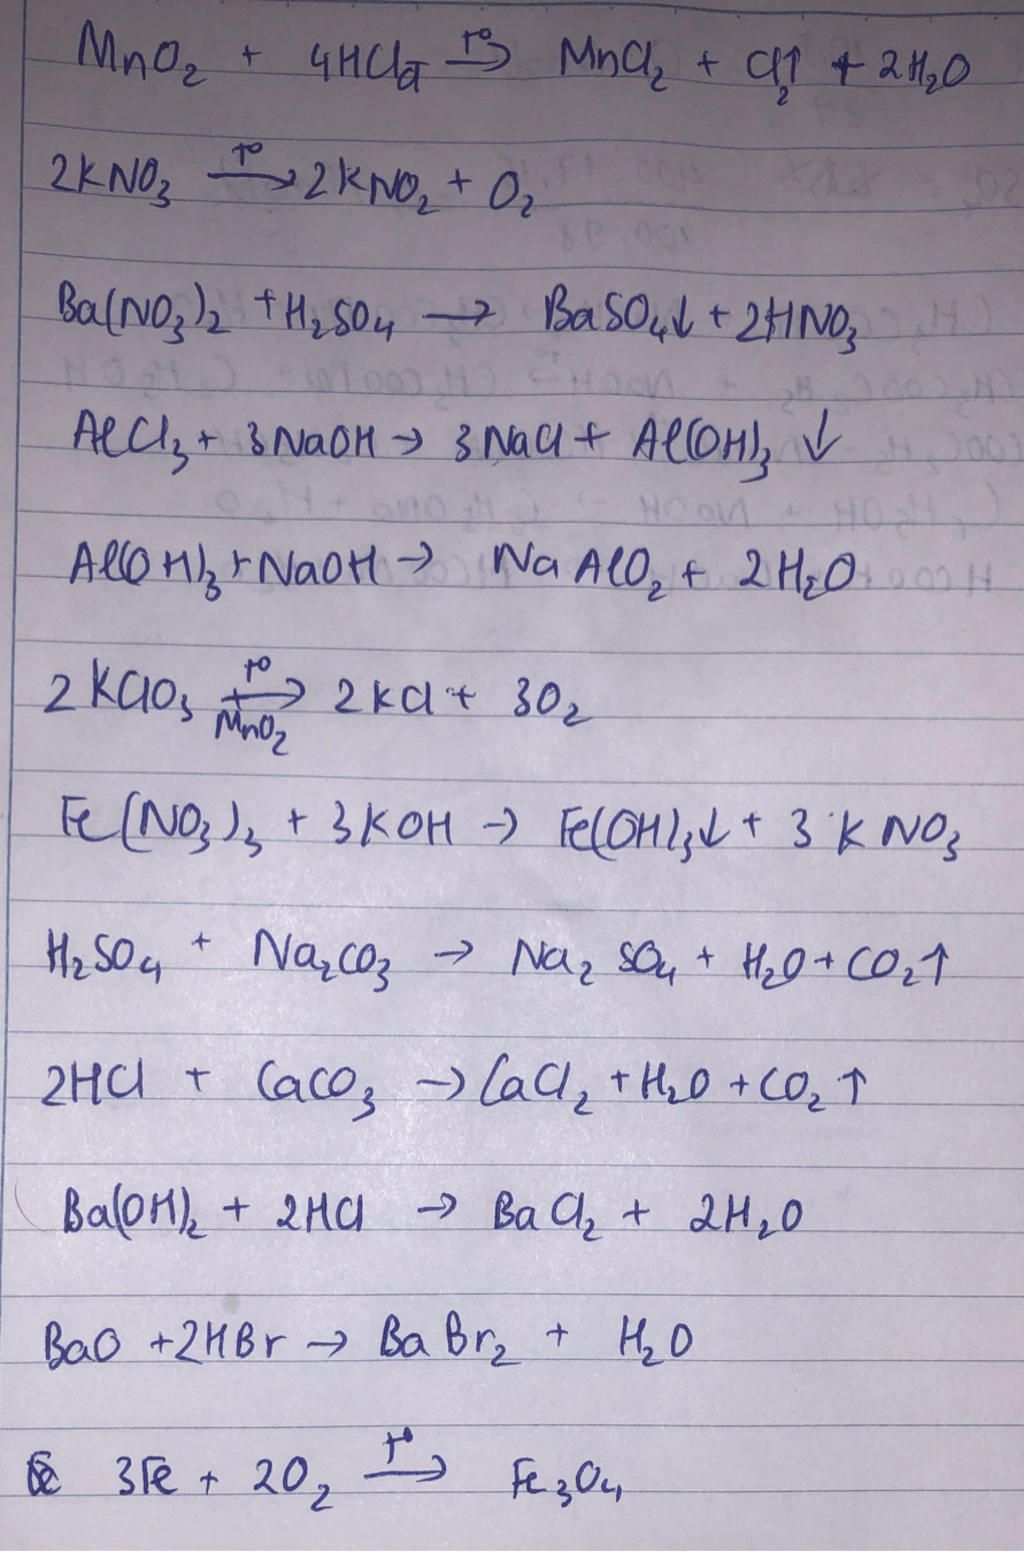 MnO₂ + 4HClđ t°→ MnCl₂ + Cl₂↑ + 2H₂O
2KNO₃ t°→ 2KNO₂ + O₂
Ba(NO₃)₂ + H₂SO₄ → BaSO₄↓ + 2HNO₃
AlCl₃ + 3NaOH → 3NaCl + Al(OH)₃ ↓
Al(OH)₃ + NaOH → NaAlO₂ + 2H₂O
2KClO₃ t°→ MnO₂ 2KCl + 3O₂
Fe(NO₃)₃ + 3KOH → Fe(OH)₃↓ + 3KNO₃
H₂SO₄ + Na₂CO₃ → Na₂SO₄ + H₂O + CO₂↑
2HCl + CaCO₃ → CaCl₂ + H₂O + CO₂↑
Ba(OH)₂ + 2HCl → BaCl₂ + 2H₂O
BaO + 2HBr → BaBr₂ + H₂O
3Fe + 2O₂ t°→ Fe₃O₄